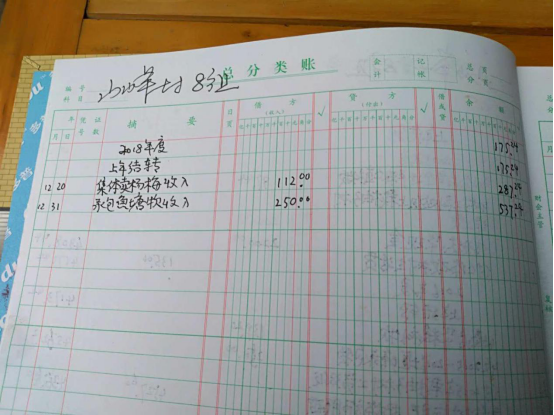 总分类账
编号
科目
8组
会计
记帐
总页
分页
年
凭证
摘要
日页
借方
(收入)
√
贷方
(付出)
√
借或贷
余额
月
日
号数
2018年度
175.24
上年结转
175.24
12 20 集体卖杨梅收入 112.00 287.24
12 31 承包鱼塘收入 250.00 537.24
财会主管